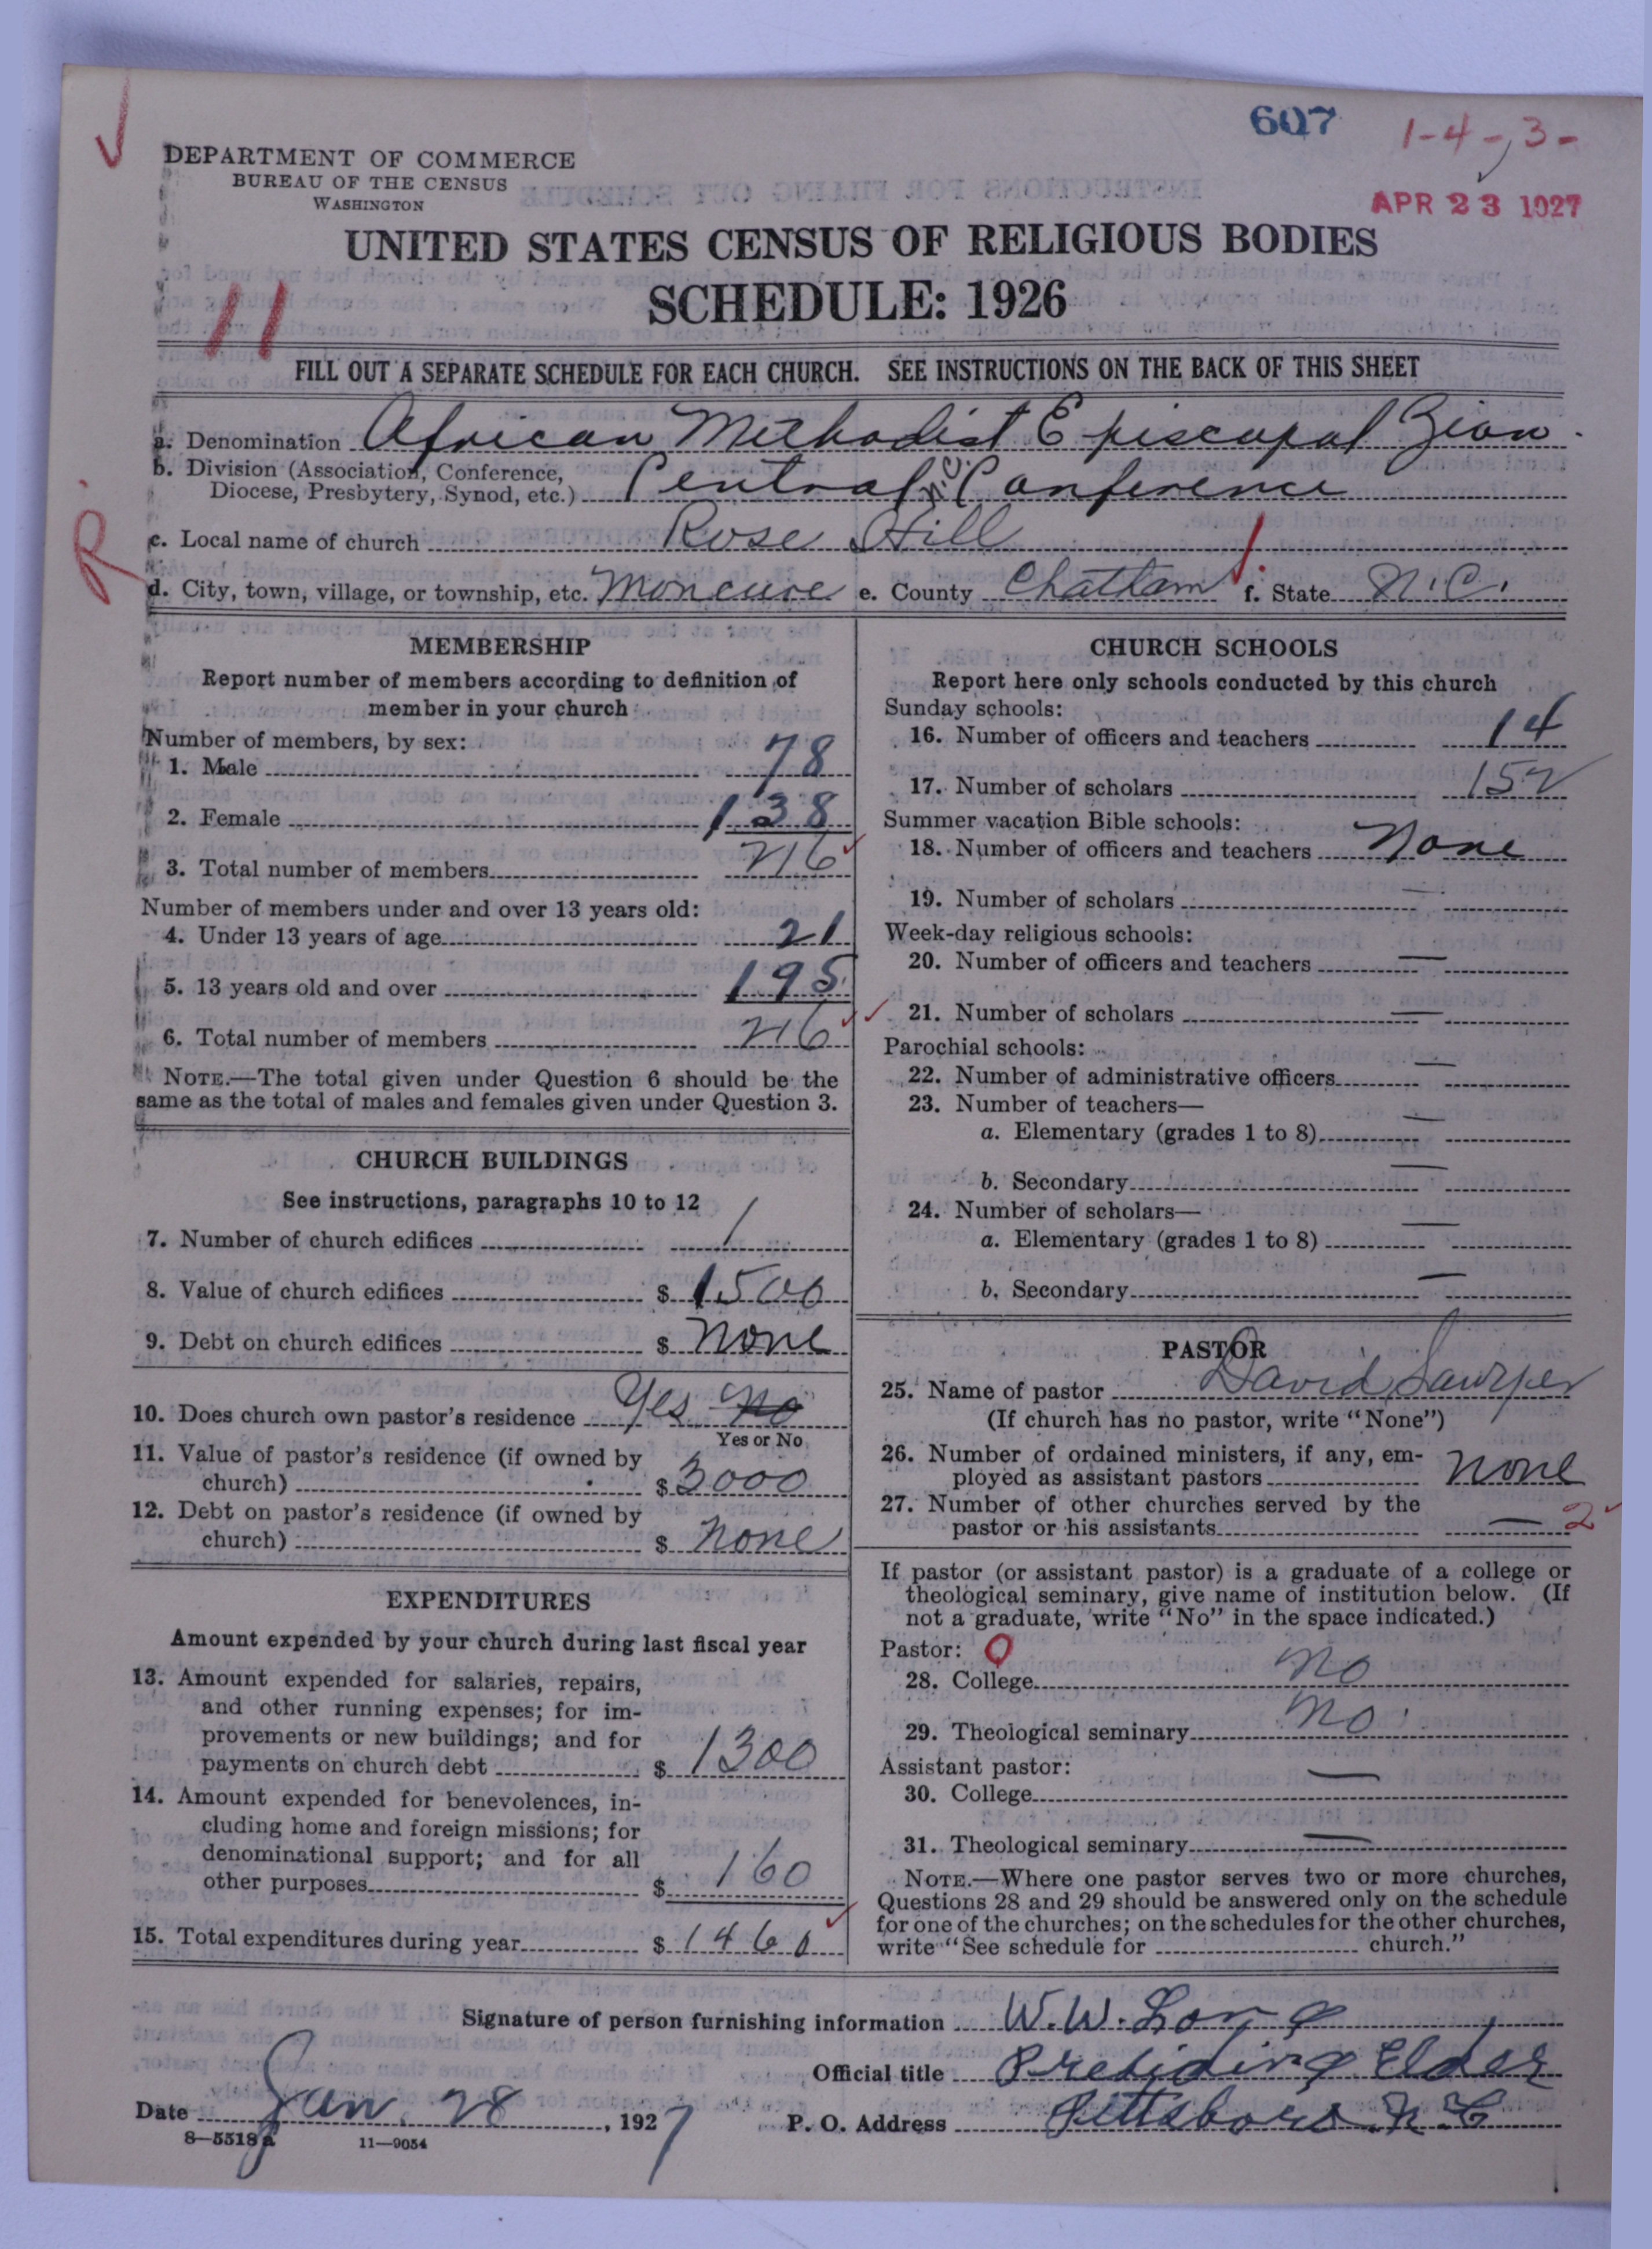 607
1-4-,3-
DEPARTMENT OF COMMERCE
BUREAU OF THE CENSUS
WASHINGTON
APR 23 1927
UNITED STATES CENSUS OF RELIGIOUS BODIES
SCHEDULE: 1926
11
FILL OUT A SEPARATE SCHEDULE FOR EACH CHURCH. SEE INSTRUCTIONS ON THE BACK OF THIS SHEET
a. Denomination African Methodist Episcopal Zion
b. Division (Association, Conference,
Diocese, Presbytery, Synod, etc.) Central N.C. Conference
R.
c. Local name of church Rose Hill
d. City, town, village, or township, etc. Moncure e. County Chatham f. State N.C.
MEMBERSHIP
Report number of members according to definition of
member in your church
Number of members, by sex:
1. Male 78
2. Female 138
3. Total number of members 216
Number of members under and over 13 years old:
4. Under 13 years of age 21
5. 13 years old and over 195
6. Total number of members 216
NOTE.—The total given under Question 6 should be the
same as the total of males and females given under Question 3.
CHURCH BUILDINGS
See instructions, paragraphs 10 to 12
7. Number of church edifices 1
8. Value of church edifices $ 1500
9. Debt on church edifices $ None
10. Does church own pastor's residence Yes No
Yes or No
11. Value of pastor's residence (if owned by
church) $ 3000
12. Debt on pastor's residence (if owned by
church) $ None
EXPENDITURES
Amount expended by your church during last fiscal year
13. Amount expended for salaries, repairs,
and other running expenses; for im-
provements or new buildings; and for
payments on church debt $ 1300
14. Amount expended for benevolences, in-
cluding home and foreign missions; for
denominational support; and for all
other purposes $ 160
15. Total expenditures during year $ 1460
CHURCH SCHOOLS
Report here only schools conducted by this church
Sunday schools:
16. Number of officers and teachers 14
17. Number of scholars 152
Summer vacation Bible schools:
18. Number of officers and teachers None
19. Number of scholars —
Week-day religious schools:
20. Number of officers and teachers —
21. Number of scholars —
Parochial schools:
22. Number of administrative officers —
23. Number of teachers—
a. Elementary (grades 1 to 8) —
b. Secondary —
24. Number of scholars—
a. Elementary (grades 1 to 8) —
b. Secondary —
PASTOR
25. Name of pastor David Sawyer
(If church has no pastor, write "None")
26. Number of ordained ministers, if any, em-
ployed as assistant pastors None
27. Number of other churches served by the
pastor or his assistants — 2
If pastor (or assistant pastor) is a graduate of a college or
theological seminary, give name of institution below. (If
not a graduate, write "No" in the space indicated.)
Pastor: 0
28. College No
29. Theological seminary No
Assistant pastor:
30. College —
31. Theological seminary —
NOTE.—Where one pastor serves two or more churches,
Questions 28 and 29 should be answered only on the schedule
for one of the churches; on the schedules for the other churches,
write "See schedule for church."
Signature of person furnishing information W.W. Long
Official title Presiding Elder
Date Jan. 28, 1927 P. O. Address Pittsboro N.C
8—5518a 11—9054